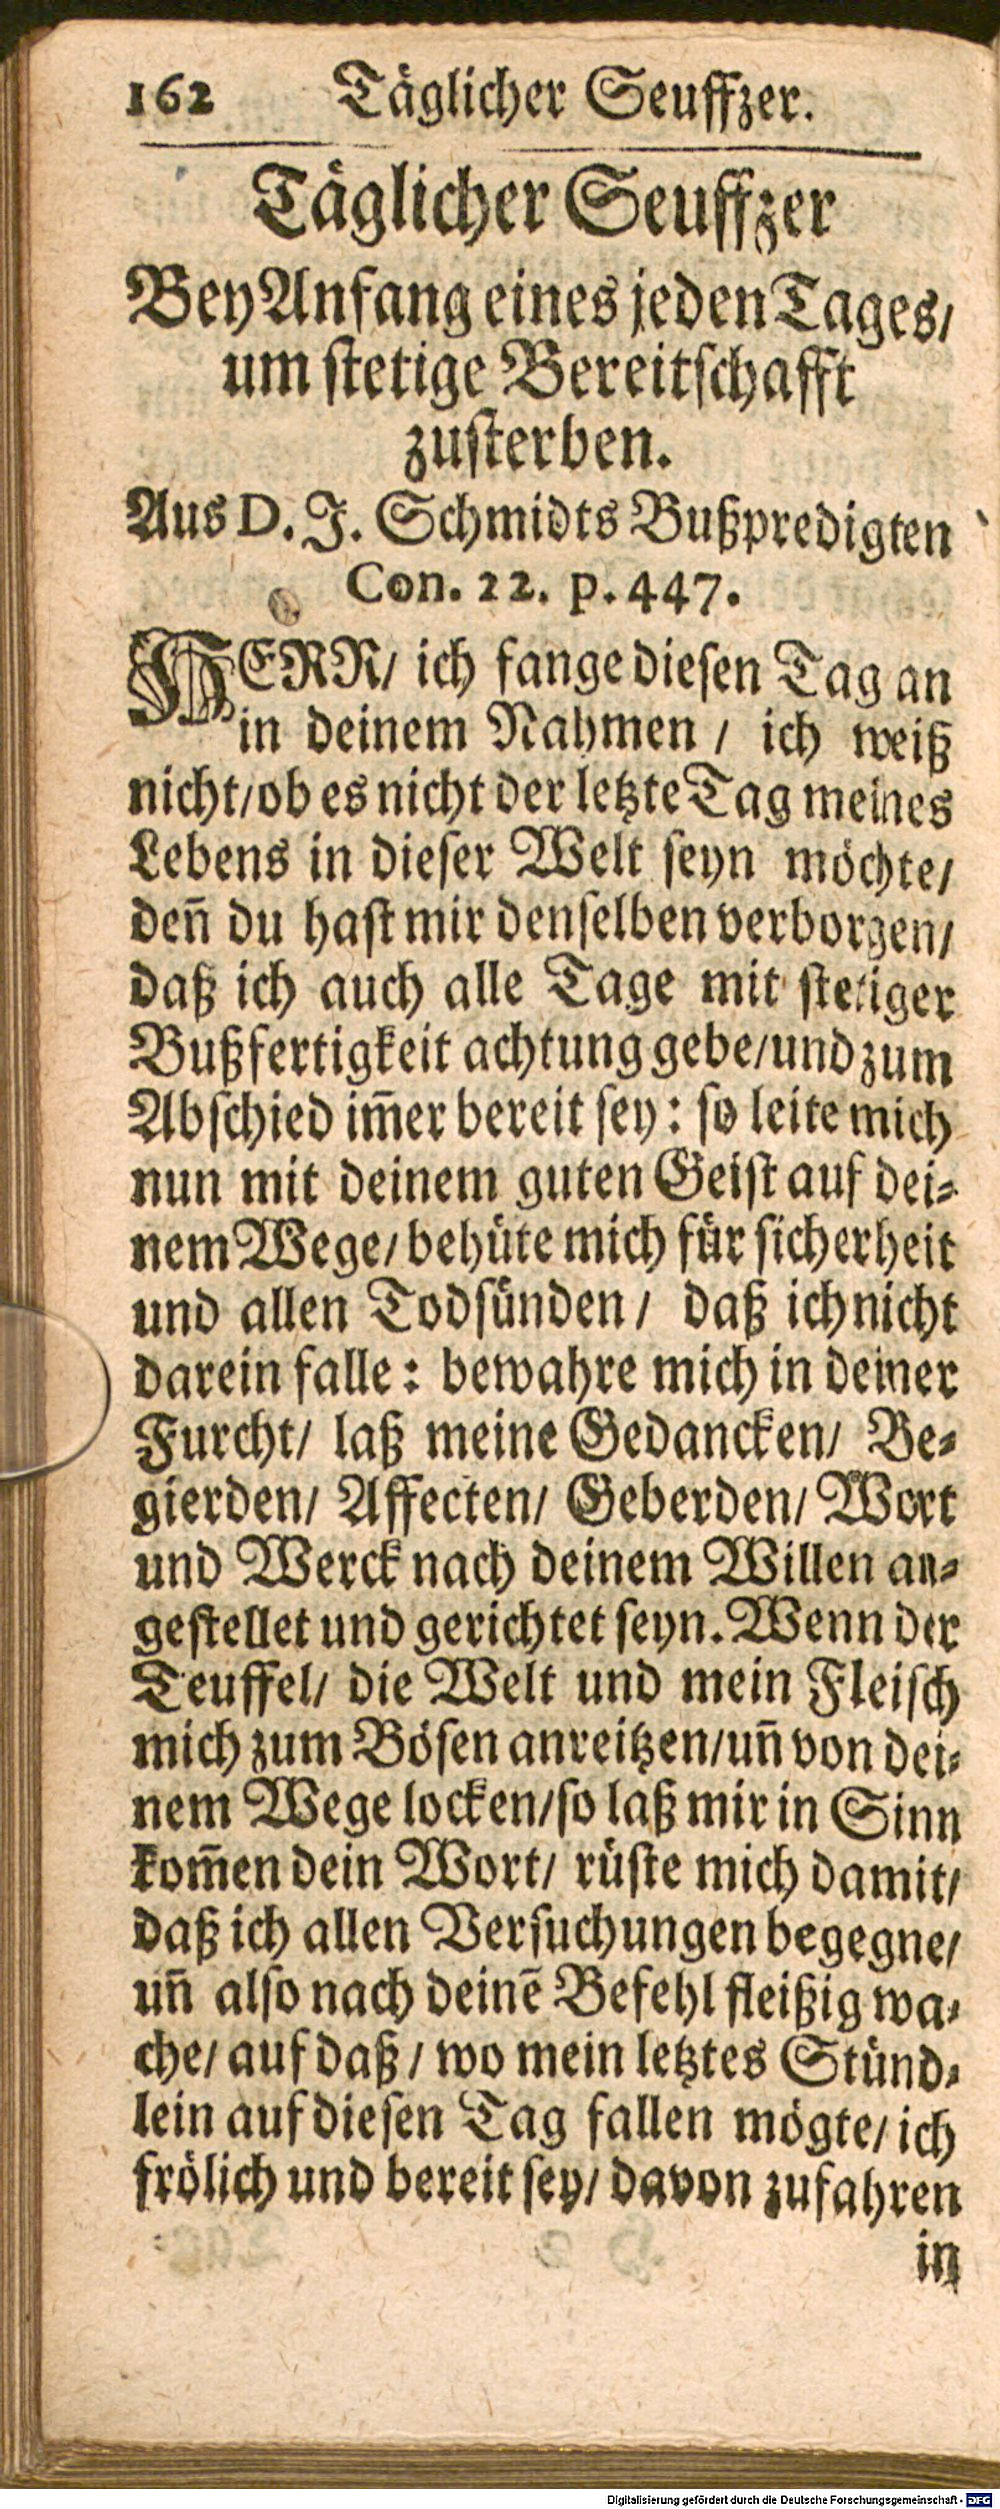 162 Täglicher Seuffzer.
Täglicher Seuffzer
Bey Anfang eines jeden Tages/
um stetige Bereitschafft
zusterben.
Aus D. J. Schmidts Bußpredigten
Con. 22. p. 447.
HERR/ ich fange diesen Tag an
in deinem Nahmen / ich weiß
nicht/ob es nicht der letzte Tag meines
Lebens in dieser Welt seyn möchte/
den̄ du hast mir denselben verborgen/
daß ich auch alle Tage mit stetiger
Bußfertigkeit achtung gebe/und zum
Abschied im̄er bereit sey: so leite mich
nun mit deinem guten Geist auf dei-
nem Wege/ behüte mich für sicherheit
und allen Todsünden / daß ich nicht
darein falle: bewahre mich in deiner
Furcht/ laß meine Gedancken/ Be-
gierden/ Affecten/ Geberden/ Wort
und Werck nach deinem Willen an-
gestellet und gerichtet seyn. Wenn der
Teuffel/ die Welt und mein Fleisch
mich zum Bösen anreitzen/un̄ von dei-
nem Wege locken/so laß mir in Sinn
kom̄en dein Wort/ rüste mich damit/
daß ich allen Versuchungen begegne/
un̄ also nach deinē Befehl fleißig wa-
che/ auf daß / wo mein letztes Stünd-
lein auf diesen Tag fallen mögte/ ich
frölich und bereit sey/ davon zufahren
in
Digitalisierung gefördert durch die Deutsche Forschungsgemeinschaft - DFG